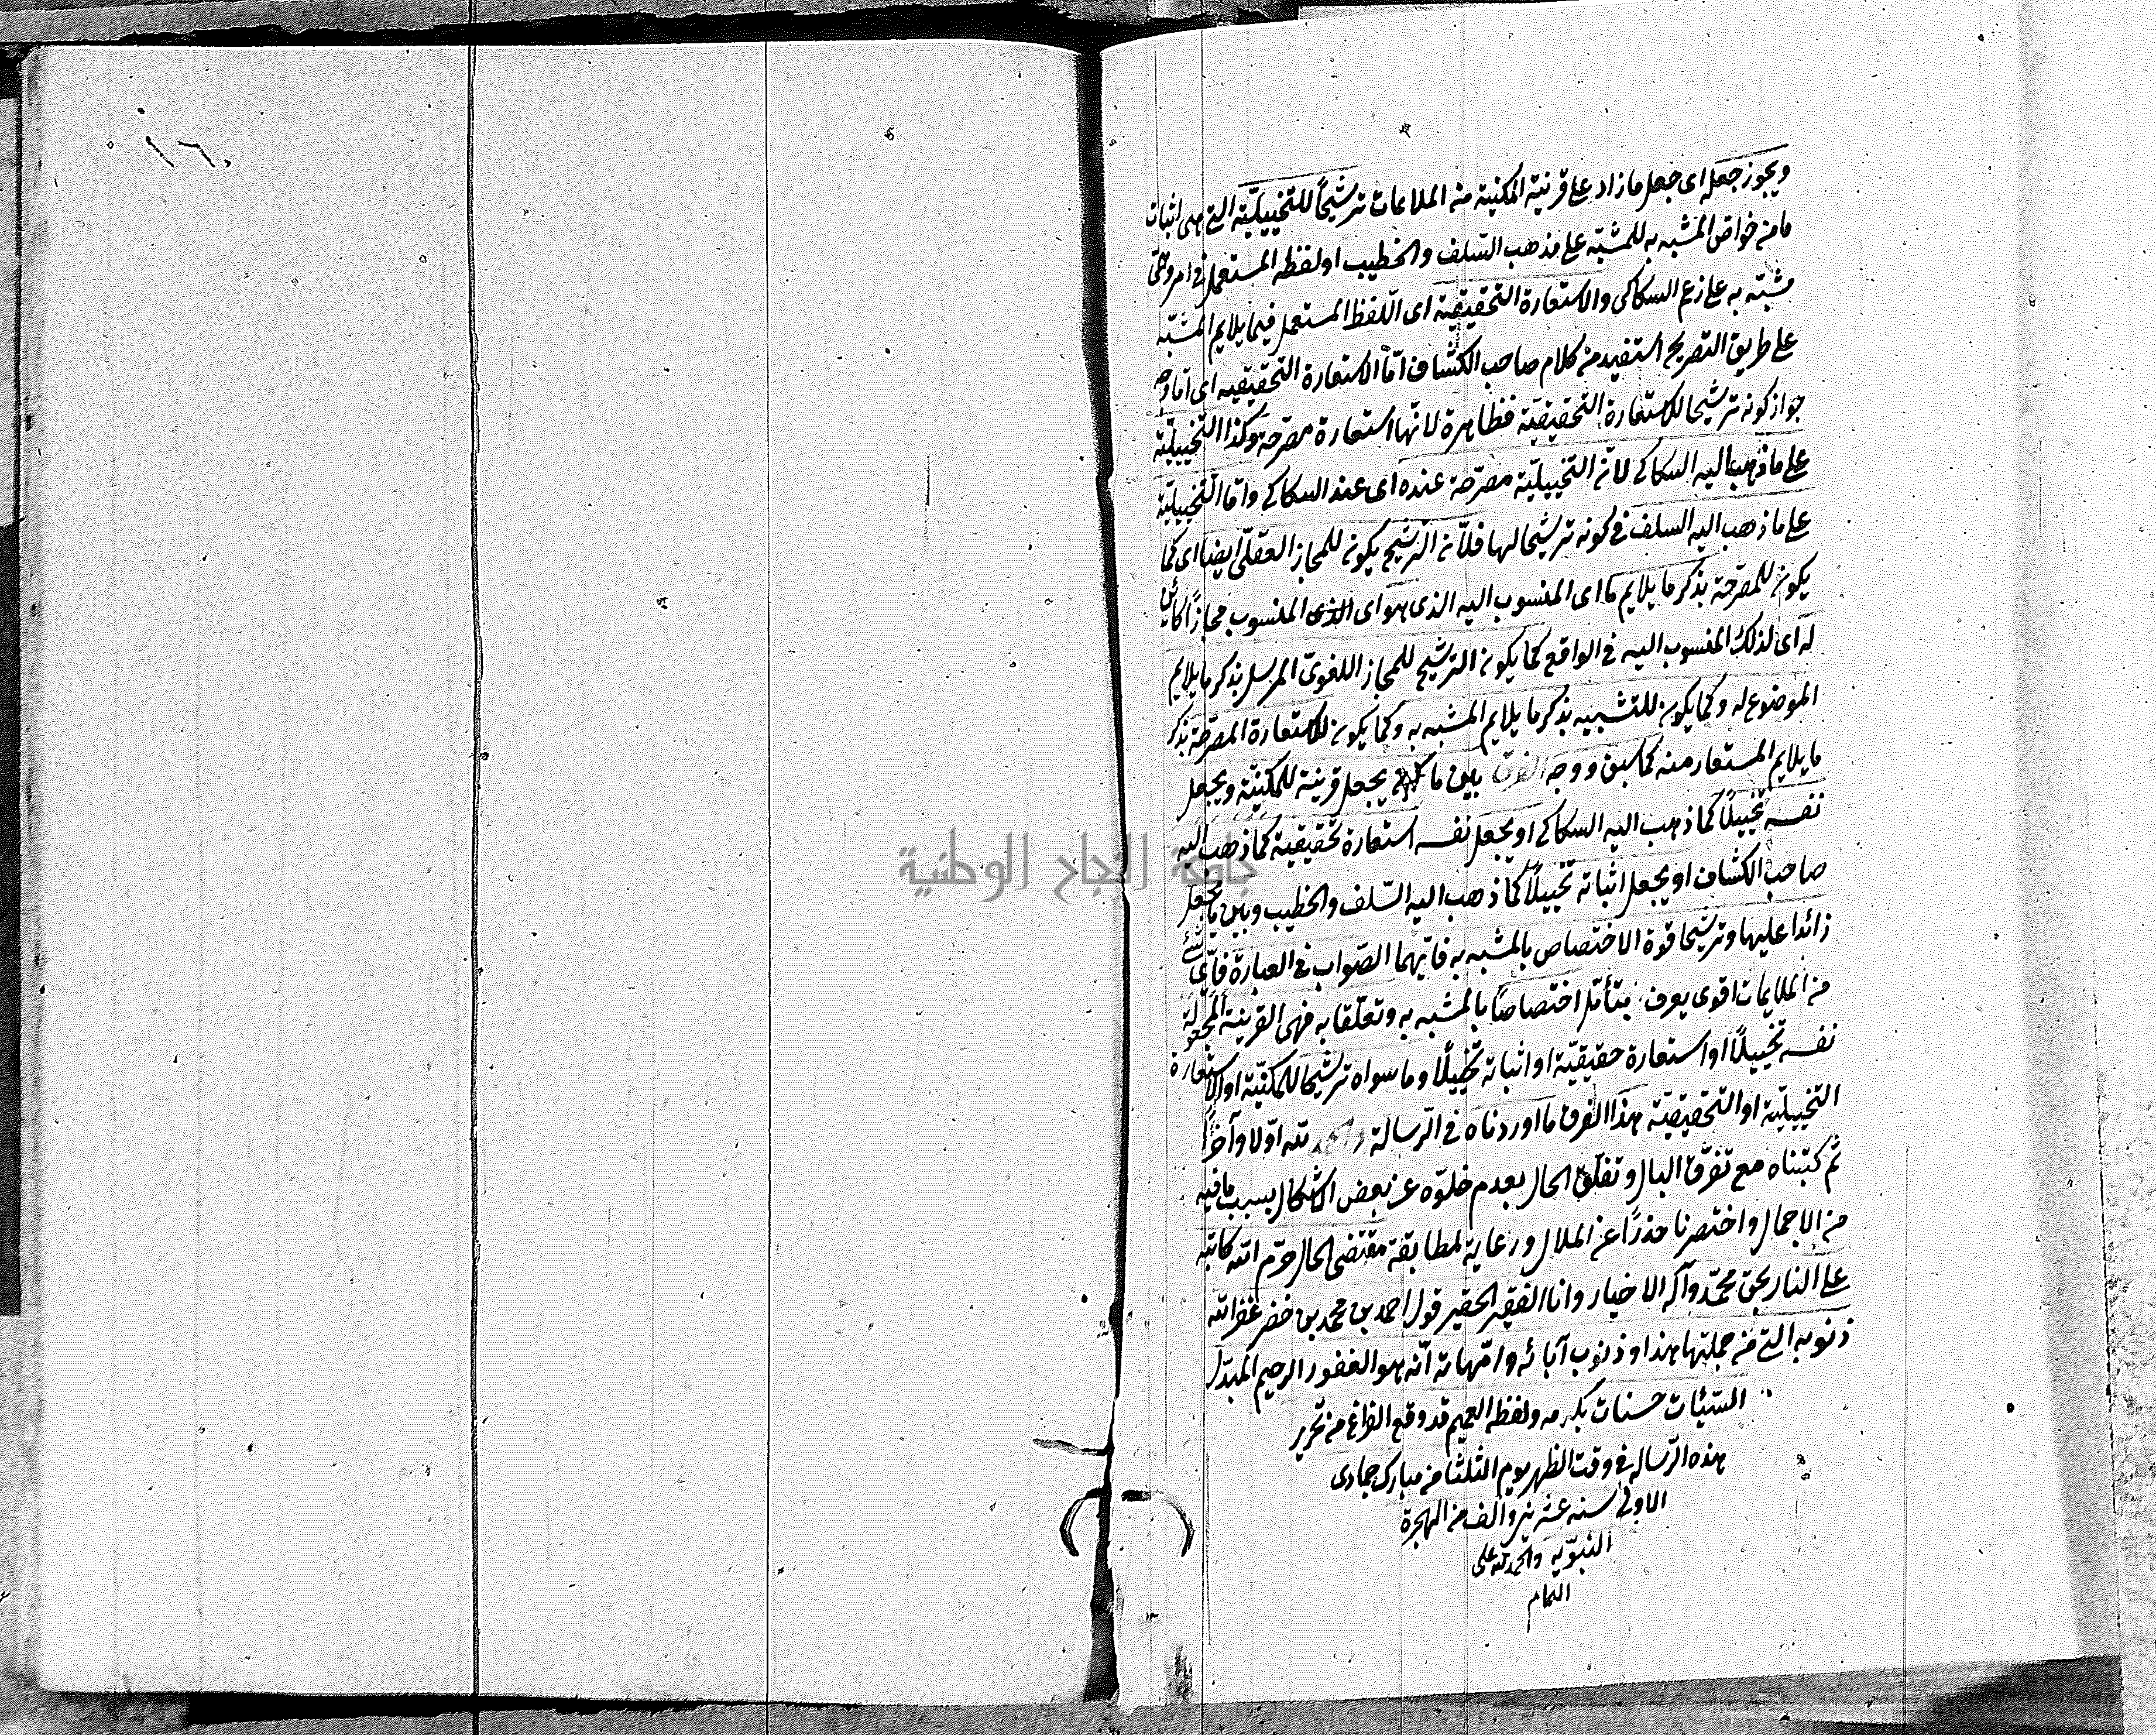 ويجوز جعله اى جعل ما زاد على قرينة المكنية من الملائمات ترشيحًا للتخييليّة التى هى اثبات
ما من خواصّ المشبه به للمشبّه على مذهب السّلف والخطيب او لفظه المستعمل فى امر وهمى
مشبّه به على زعم السكاكى والاستعارة التحقيقيّة اى اللّفظ المستعمل فيما يلايم المشبّه
على طريق التصريح استفيد من كلام صاحب الكشّاف امّا الاستعارة التحقيقيه اى اما وجه
جواز كونه ترشيحا للاستعارة التحقيقيّة فظاهرة لانّها استعارة مصرّحة وكذا التخييليّة
على ما ذهب اليه السكاكى لانّ التخييليّة مصرّحة عنده اى عند السكاكى وامّا التّخييليّة
على ما ذهب اليه السلف فى كونه ترشيحا لها فلانّ الترشيح يكون للمجاز العقلّى ايضا اى كما
يكون للمصرّحة بذكر ما يلايم ما اى المنسوب اليه الذى هو اى المنسوب مجازًا كائن
له اى لذلك المنسوب اليه فى الواقع كما يكون الترشيح للمجاز اللغوىّ المرسل بذكر ما يلايم
الموضوع له وكما يكون للتشبيه بذكر ما يلايم المشبه به وكما يكون للاستعارة المصرّحة بذكر
ما يلايم المستعار منه كما سبق ووجه الفرق بين ما يجعل قرينة للمكنيّة ويجعل
نفسه تخييلًا كما ذهب اليه السكاكى او يجعل نفسه استعارة تحقيقية كما ذهب اليه
صاحب الكشاف او يجعل اثباته تخييلًا كما ذهب اليه السّلف والخطيب وبين ما يجعل
زائدا عليها وترشيحا قوة الاختصاص بالمشبه به فايّهما الصّواب فى العبارة فاىّ شئ
من الملايمات اقوى يعرف بتأمّل اختصاصًا بالمشبه به وتعلّقا به فهى القرينة المجعولة
نفسه تخييلًا او استعارة حقيقيّة او اثباته تخييلًا وما سواه ترشيحًا للمكنيّة او الاستعارة
التخييليّة او التحقيقيّة هذا الفرق ما اوردناه فى الرّسالة والحمد لله اوّلا وآخرًا
ثم كتبناه مع تفرّق البال وتقلّق الحال بعدم خلوّه عن بعض الاشكال بسبب ما فيه
من الاجمال واختصرنا حذرًا عن الملال ورعاية لمطابقة مقتضى الحال حرّم الله كاتبه
على النار بحق محمّد وآله الاخيار وانا الفقير الحقير قول احمد بن محمد بن خضر غفر الله
ذنوبه التى من جملتها هذا وذنوب آبائه وامّهاته انّه هو الغفور الرحيم المبدّل
السيّئات حسنات بكرمه ولفظه العميم قد وقع الفراغ من تحرير
هذه الرّساله فى وقت الظهر يوم الثلثا من مبارك جمادى
الاولى سنه عشرين والف من الهجرة
النبوّيه والحمد لله على
التمام
١٦٠
جامعة النجاح الوطنية